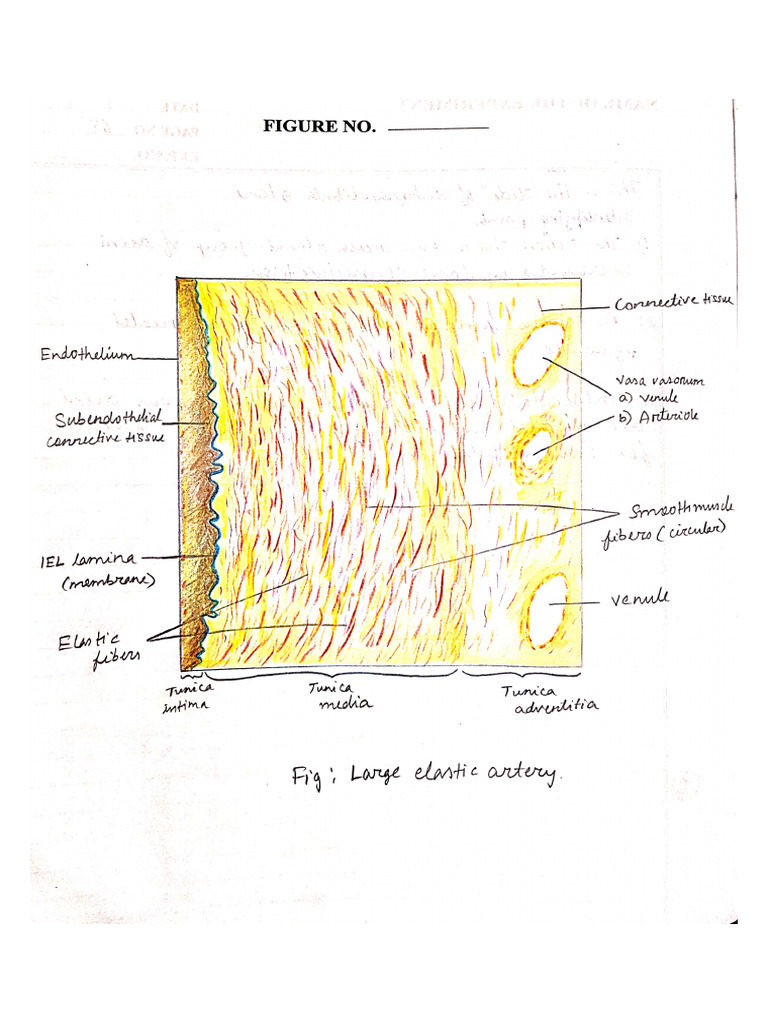 FIGURE NO.
Connective tissue
Endothelium
Vasa vasorum
a) venule
b) Arteriole
Subendothelial
connective tissue
Smooth muscle
fibers (circular)
IEL lamina
(membrane)
venule
Elastic
fibers
Tunica
intima
Tunica
media
Tunica
adventitia
Fig: Large elastic artery.